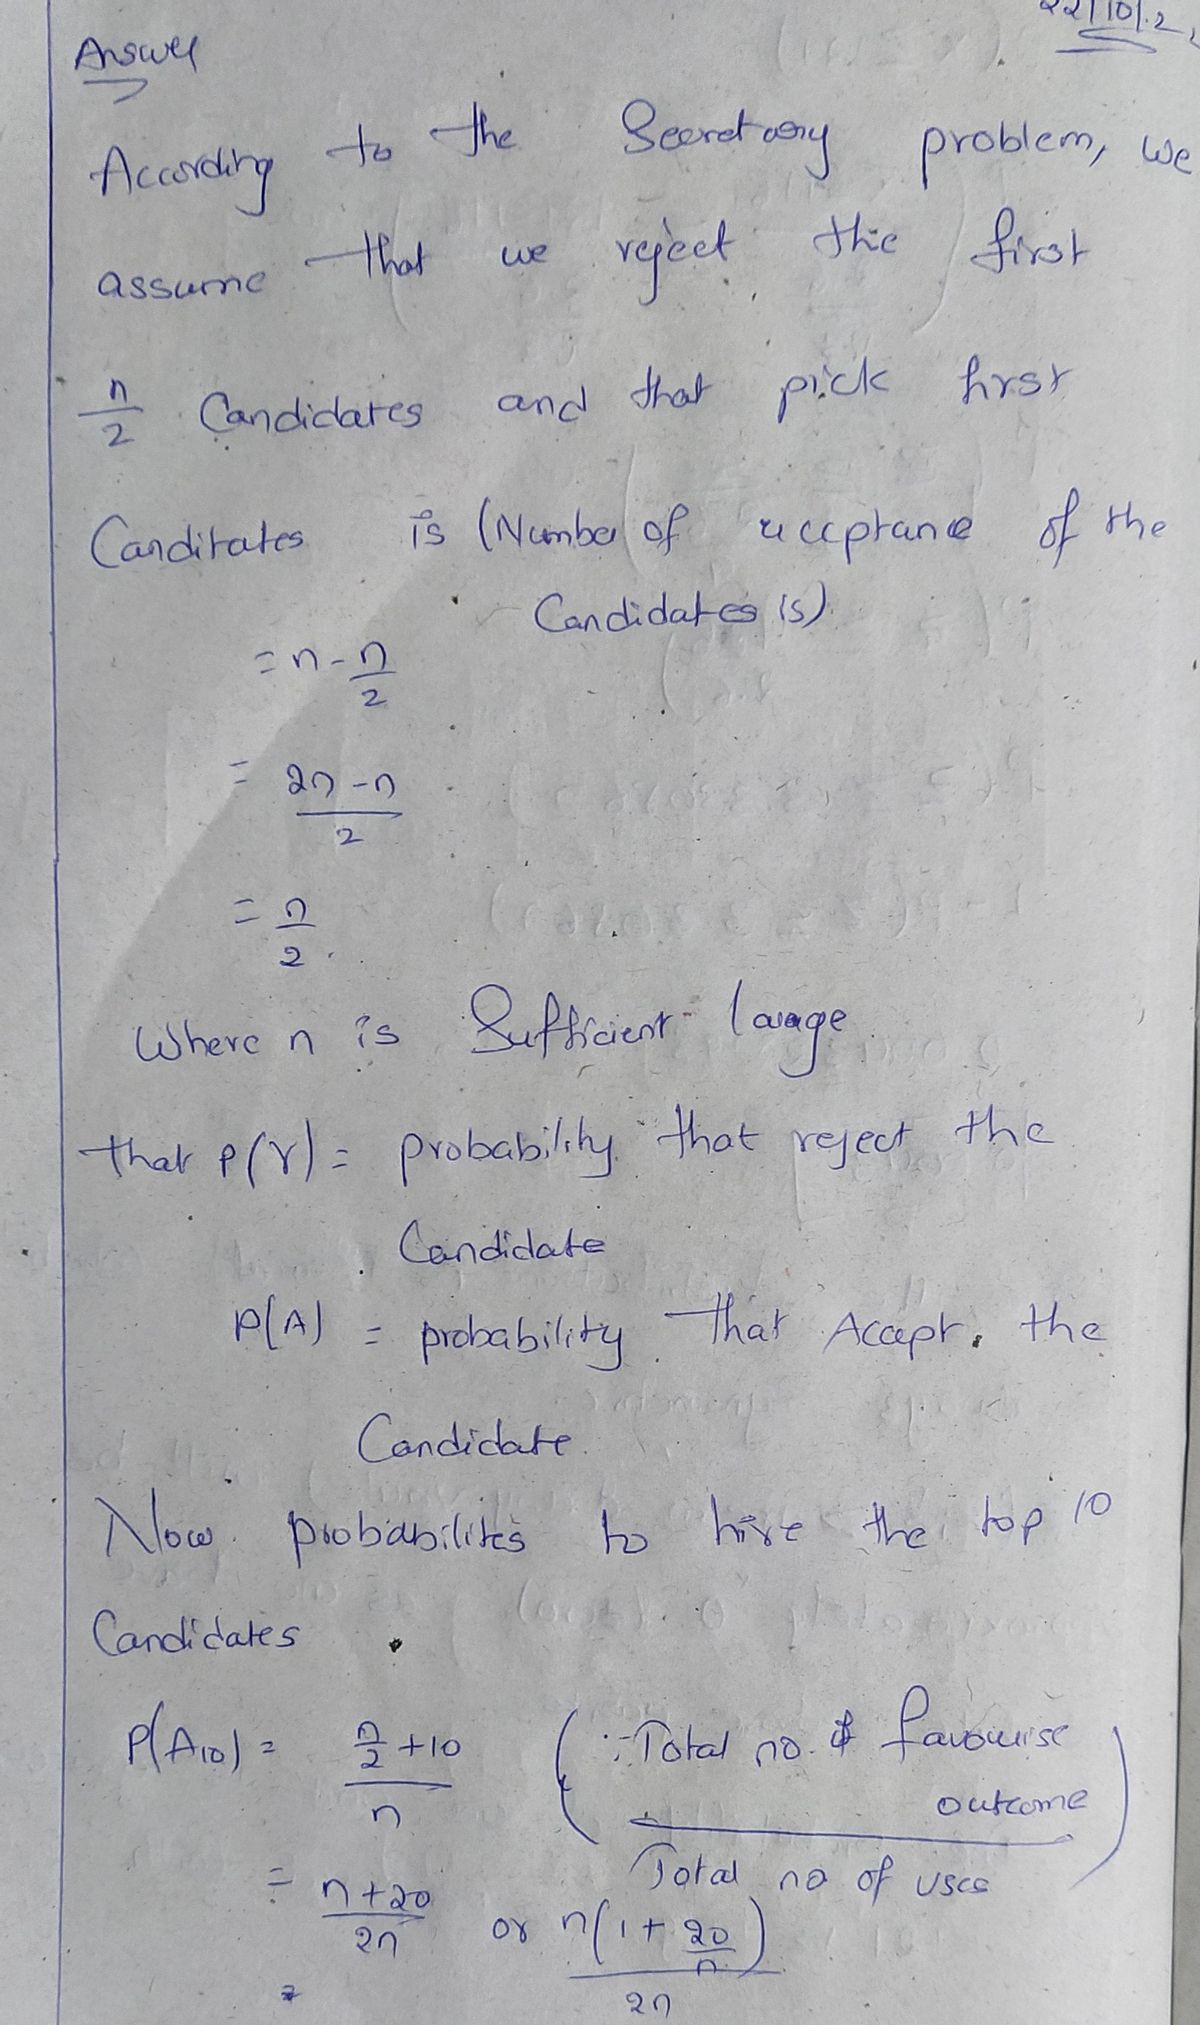 22/10/.2
Answer
According to the Secretary problem, we
assume that we reject the first
n/2 Candidates and that pick first
Canditates is (Number of acceptance of the
Candidates is)
= n - n/2
= 2n - n / 2
= n/2.
Where n is Sufficient large
that P(r) = probability that reject the
Candidate
P(A) = probability that Accept the
Candidate.
Now probabilites to hire the top 10
Candidates
P(A10) = n/2 + 10 / n (∵ Total no. of favourise
outcome
Total no of uses)
= n+20 / 2n or n(1 + 20/n) / 2n
=